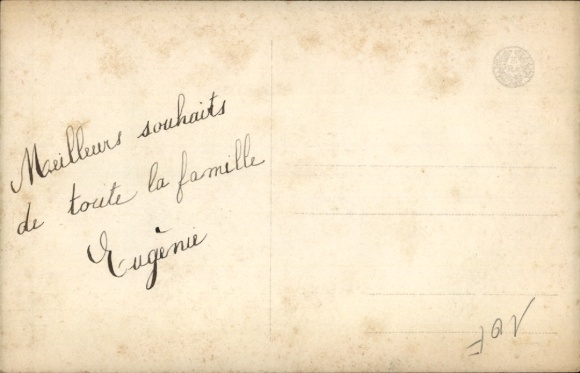 Meilleurs souhaits
de toute la famille
Eugènie